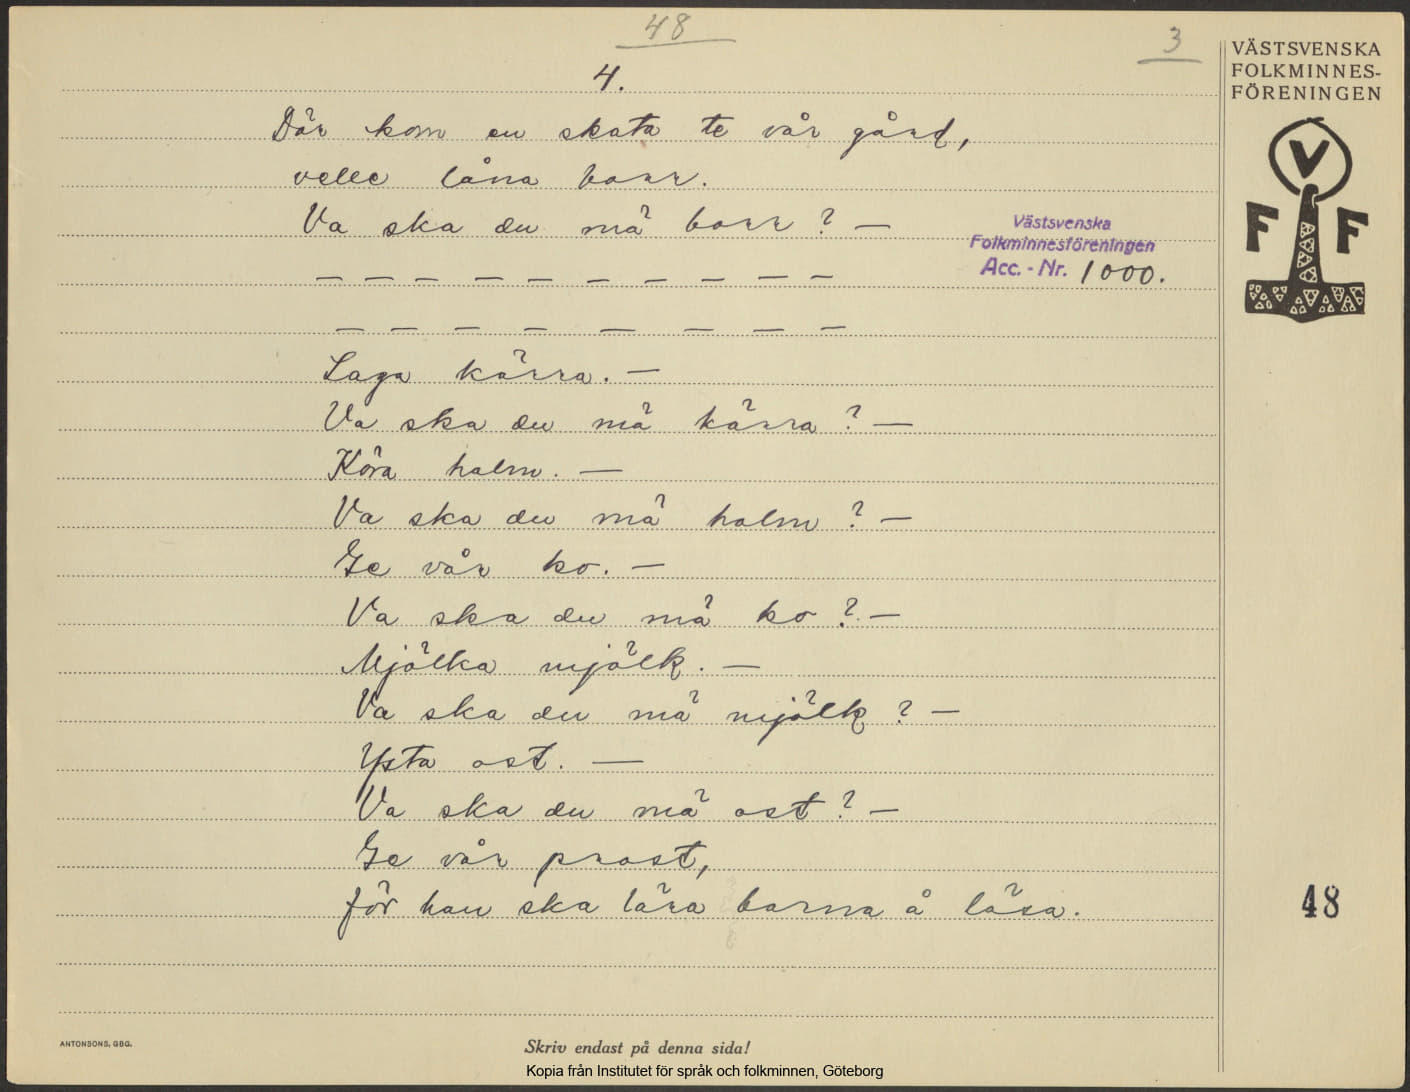 48
3
4.
VÄSTSVENSKA
FOLKMINNES-
FÖRENINGEN
Där kom en skata te vår gård,
velle låna borr.
V
F F
Va ska du mä borr? —
Västsvenska
Folkminnesföreningen
Acc. - Nr. 1000.
— — — — — — — — — —
— — — — — — — —
Laga kärra. —
Va ska du mä kärra? —
Köra halm. —
Va ska du mä halm? —
Ge vår ko. —
Va ska du mä ko? —
Mjölka mjölk. —
Va ska du mä mjölk? —
Ysta ost. —
Va ska du mä ost? —
Ge vår prost,
för han ska lära barna å läsa.
48
ANTONSONS, GBG.
Skriv endast på denna sida!
Kopia från Institutet för språk och folkminnen, Göteborg